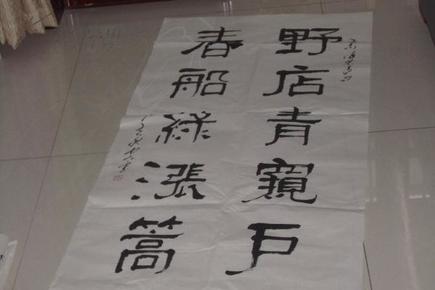 野店青窺戶
春船綠漲篙